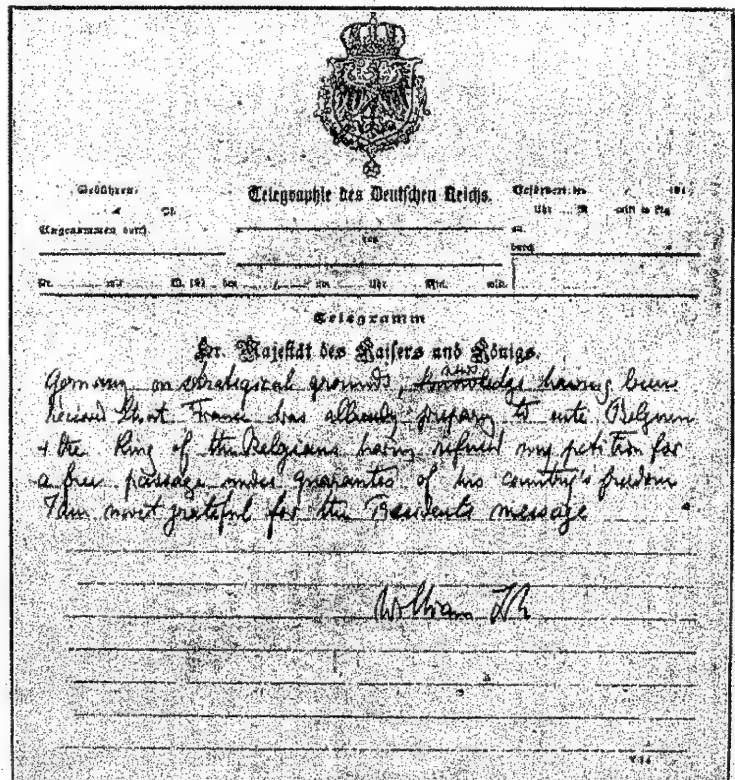 Gebühren:
Telegraphie des Deutschen Reichs.
Befördert den 191
Uhr
Angenommen durch
von
an
durch
Nr. mit W. 191 den um Uhr Min.
Telegramm
Sr. Majestät des Kaisers und Königs.
news
Germany on strategical grounds, knowledge having been
received that France was already preparing to enter Belgium
+ the King of the Belgians having refused my petition for
a free passage under guarantee of his country's freedom
I am most grateful for the Presidents message
William IR